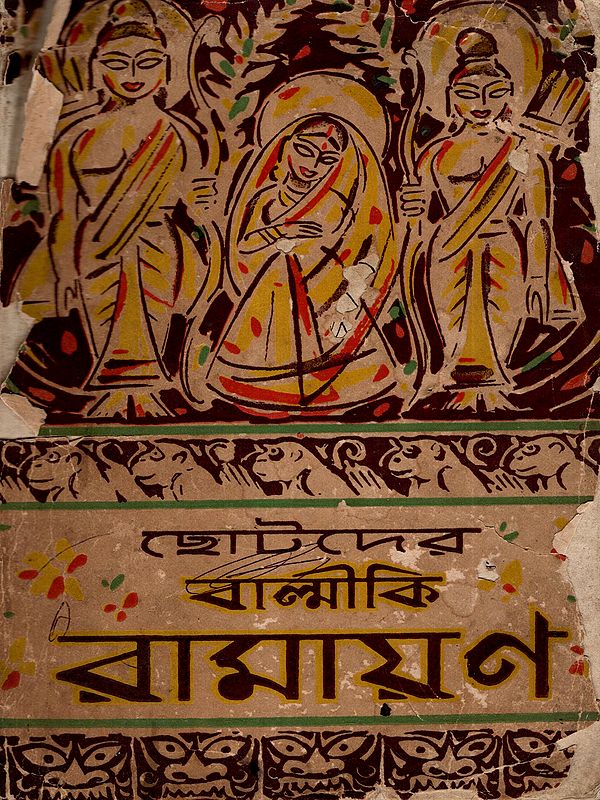 ছোটদের
বাল্মীকি
রামায়ণ